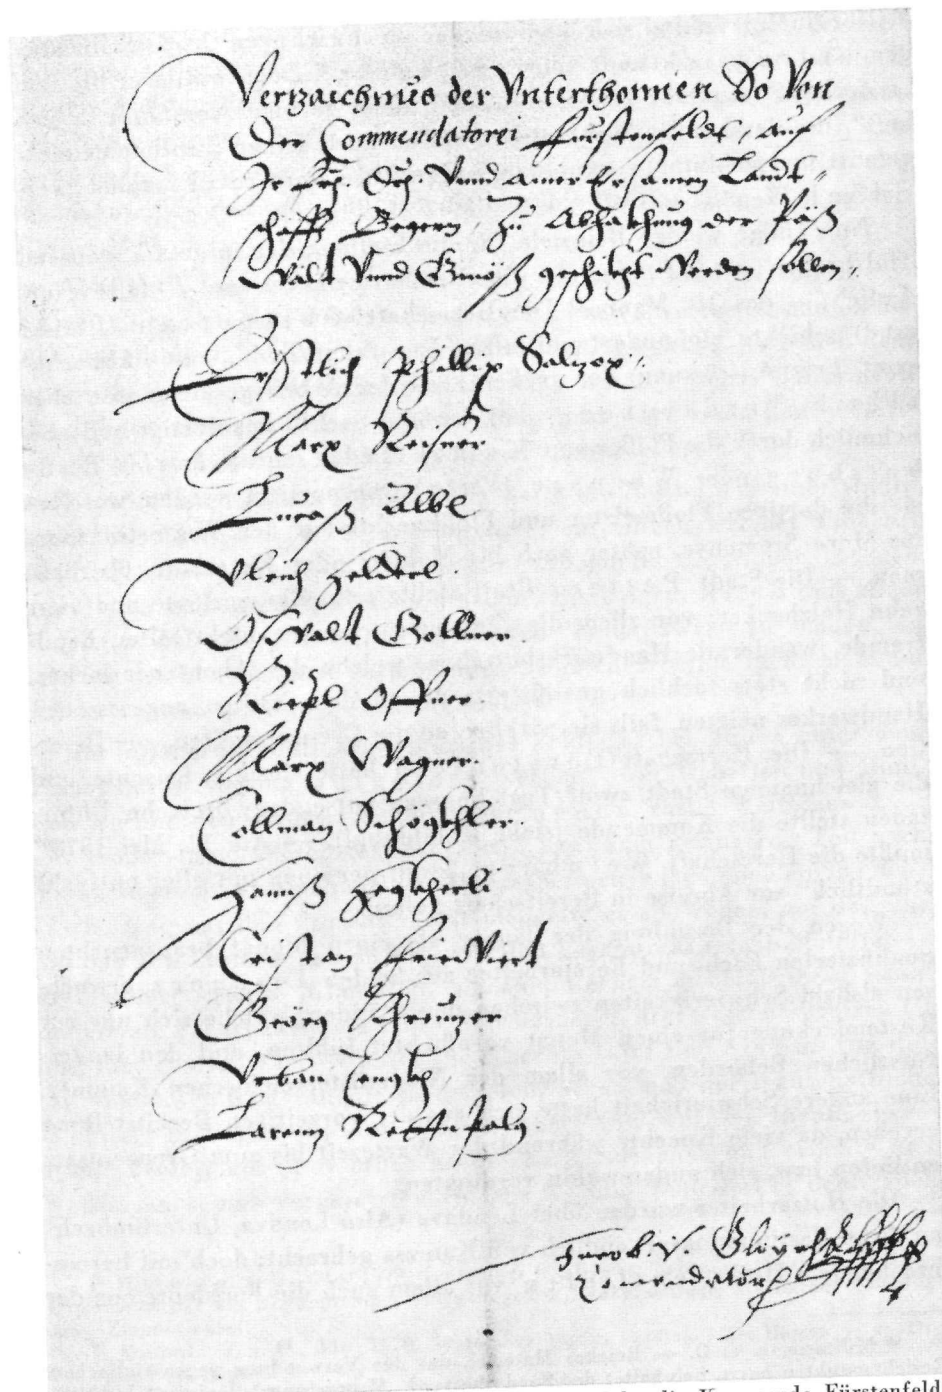 Vertzaichnus der Vnterthonnen So Von
Der Commendatorei Fürstenfeldt, auf
Ir Frh. Drh. Vnnd ainer Ersamen Landt„
schafft Begern, Zu Abhakhung der Päß
Wält Vnnd Gmöß geschikht Werden sollen,
Erstlich Phillip Salzer.
Marx Reisner
Lucaß Älbl
Vlrich Helderl.
Oswalt Gollner.
Riepl Offner
Marx Wagner.
Collman Schögkhler.
Hannß Hegkherli
Cristan Friewiert
Geörg Khreutzer
Vrban
Larentz
Jacob. V.
Comendator
Fürstenfeld